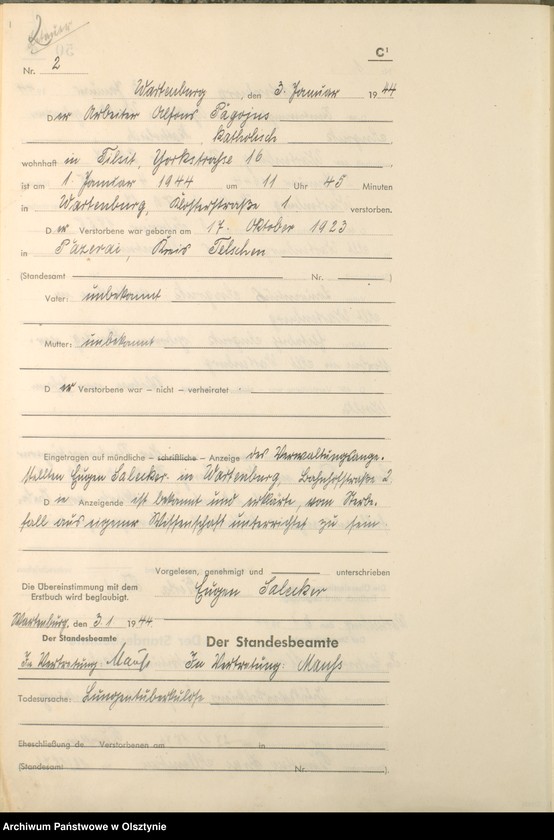 C¹
Nr. 2
Wartenburg, den 3. Januar 1944
Der Arbeiter Alfons Pägojus
Katholisch,
wohnhaft in Tilsit, Yorkstraße 16,
ist am 1. Januar 1944 um 11 Uhr 45 Minuten
in Wartenburg, Klosterstraße 1 verstorben.
Der Verstorbene war geboren am 17. Oktober 1923
in Pazerai, Kreis Telschen
(Standesamt Nr. )
Vater: unbekannt
Mutter: unbekannt
Der Verstorbene war – nicht – verheiratet
Eingetragen auf mündliche – schriftliche – Anzeige des Verwaltungsange-
stellten Eugen Salecker in Wartenburg, Bahnhofstraße 2
Den Anzeigende ist bekannt und erklärte, vom Sterbe-
fall aus eigener Wissenschaft unterrichtet zu sein
Vorgelesen, genehmigt und unterschrieben
Eugen Salecker
Die Übereinstimmung mit dem
Erstbuch wird beglaubigt.
Wartenburg, den 3.1 1944
Der Standesbeamte
In Vertretung:
Der Standesbeamte
In Vertretung:
Todesursache: Lungentuberkulose
Eheschließung de Verstorbenen am in
(Standesamt Nr. ).
Archiwum Państwowe w Olsztynie